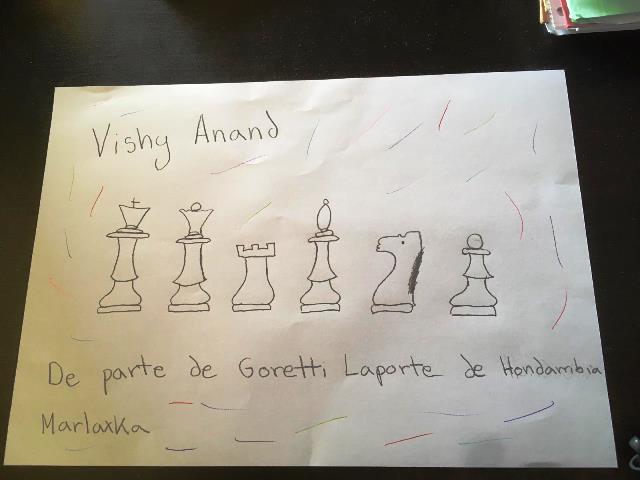 Vishy Anand
De parte de Goretti Laporte de Hondambia
Marlaxka